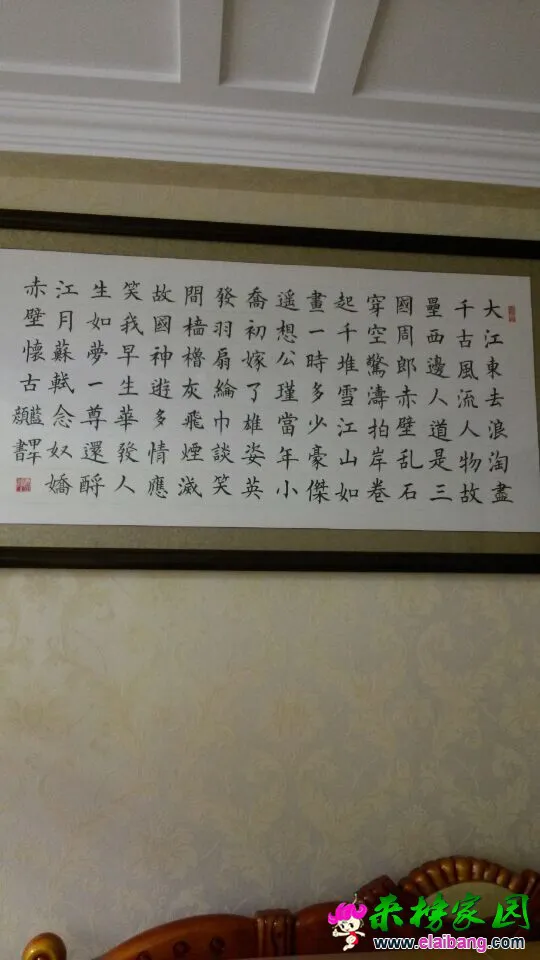 大江東去浪淘盡
千古風流人物故
壘西邊人道是三
國周郎赤壁乱石
穿空驚濤拍岸卷
起千堆雪江山如
畫一時多少豪傑
遥想公瑾當年小
喬初嫁了雄姿英
發羽扇綸巾談笑
間檣櫓灰飛煙滅
故國神遊多情應
笑我早生華發人
生如夢一尊還酹
江月蘇軾念奴嬌
赤壁懷古
書
来榜家园
www.elaibang.com